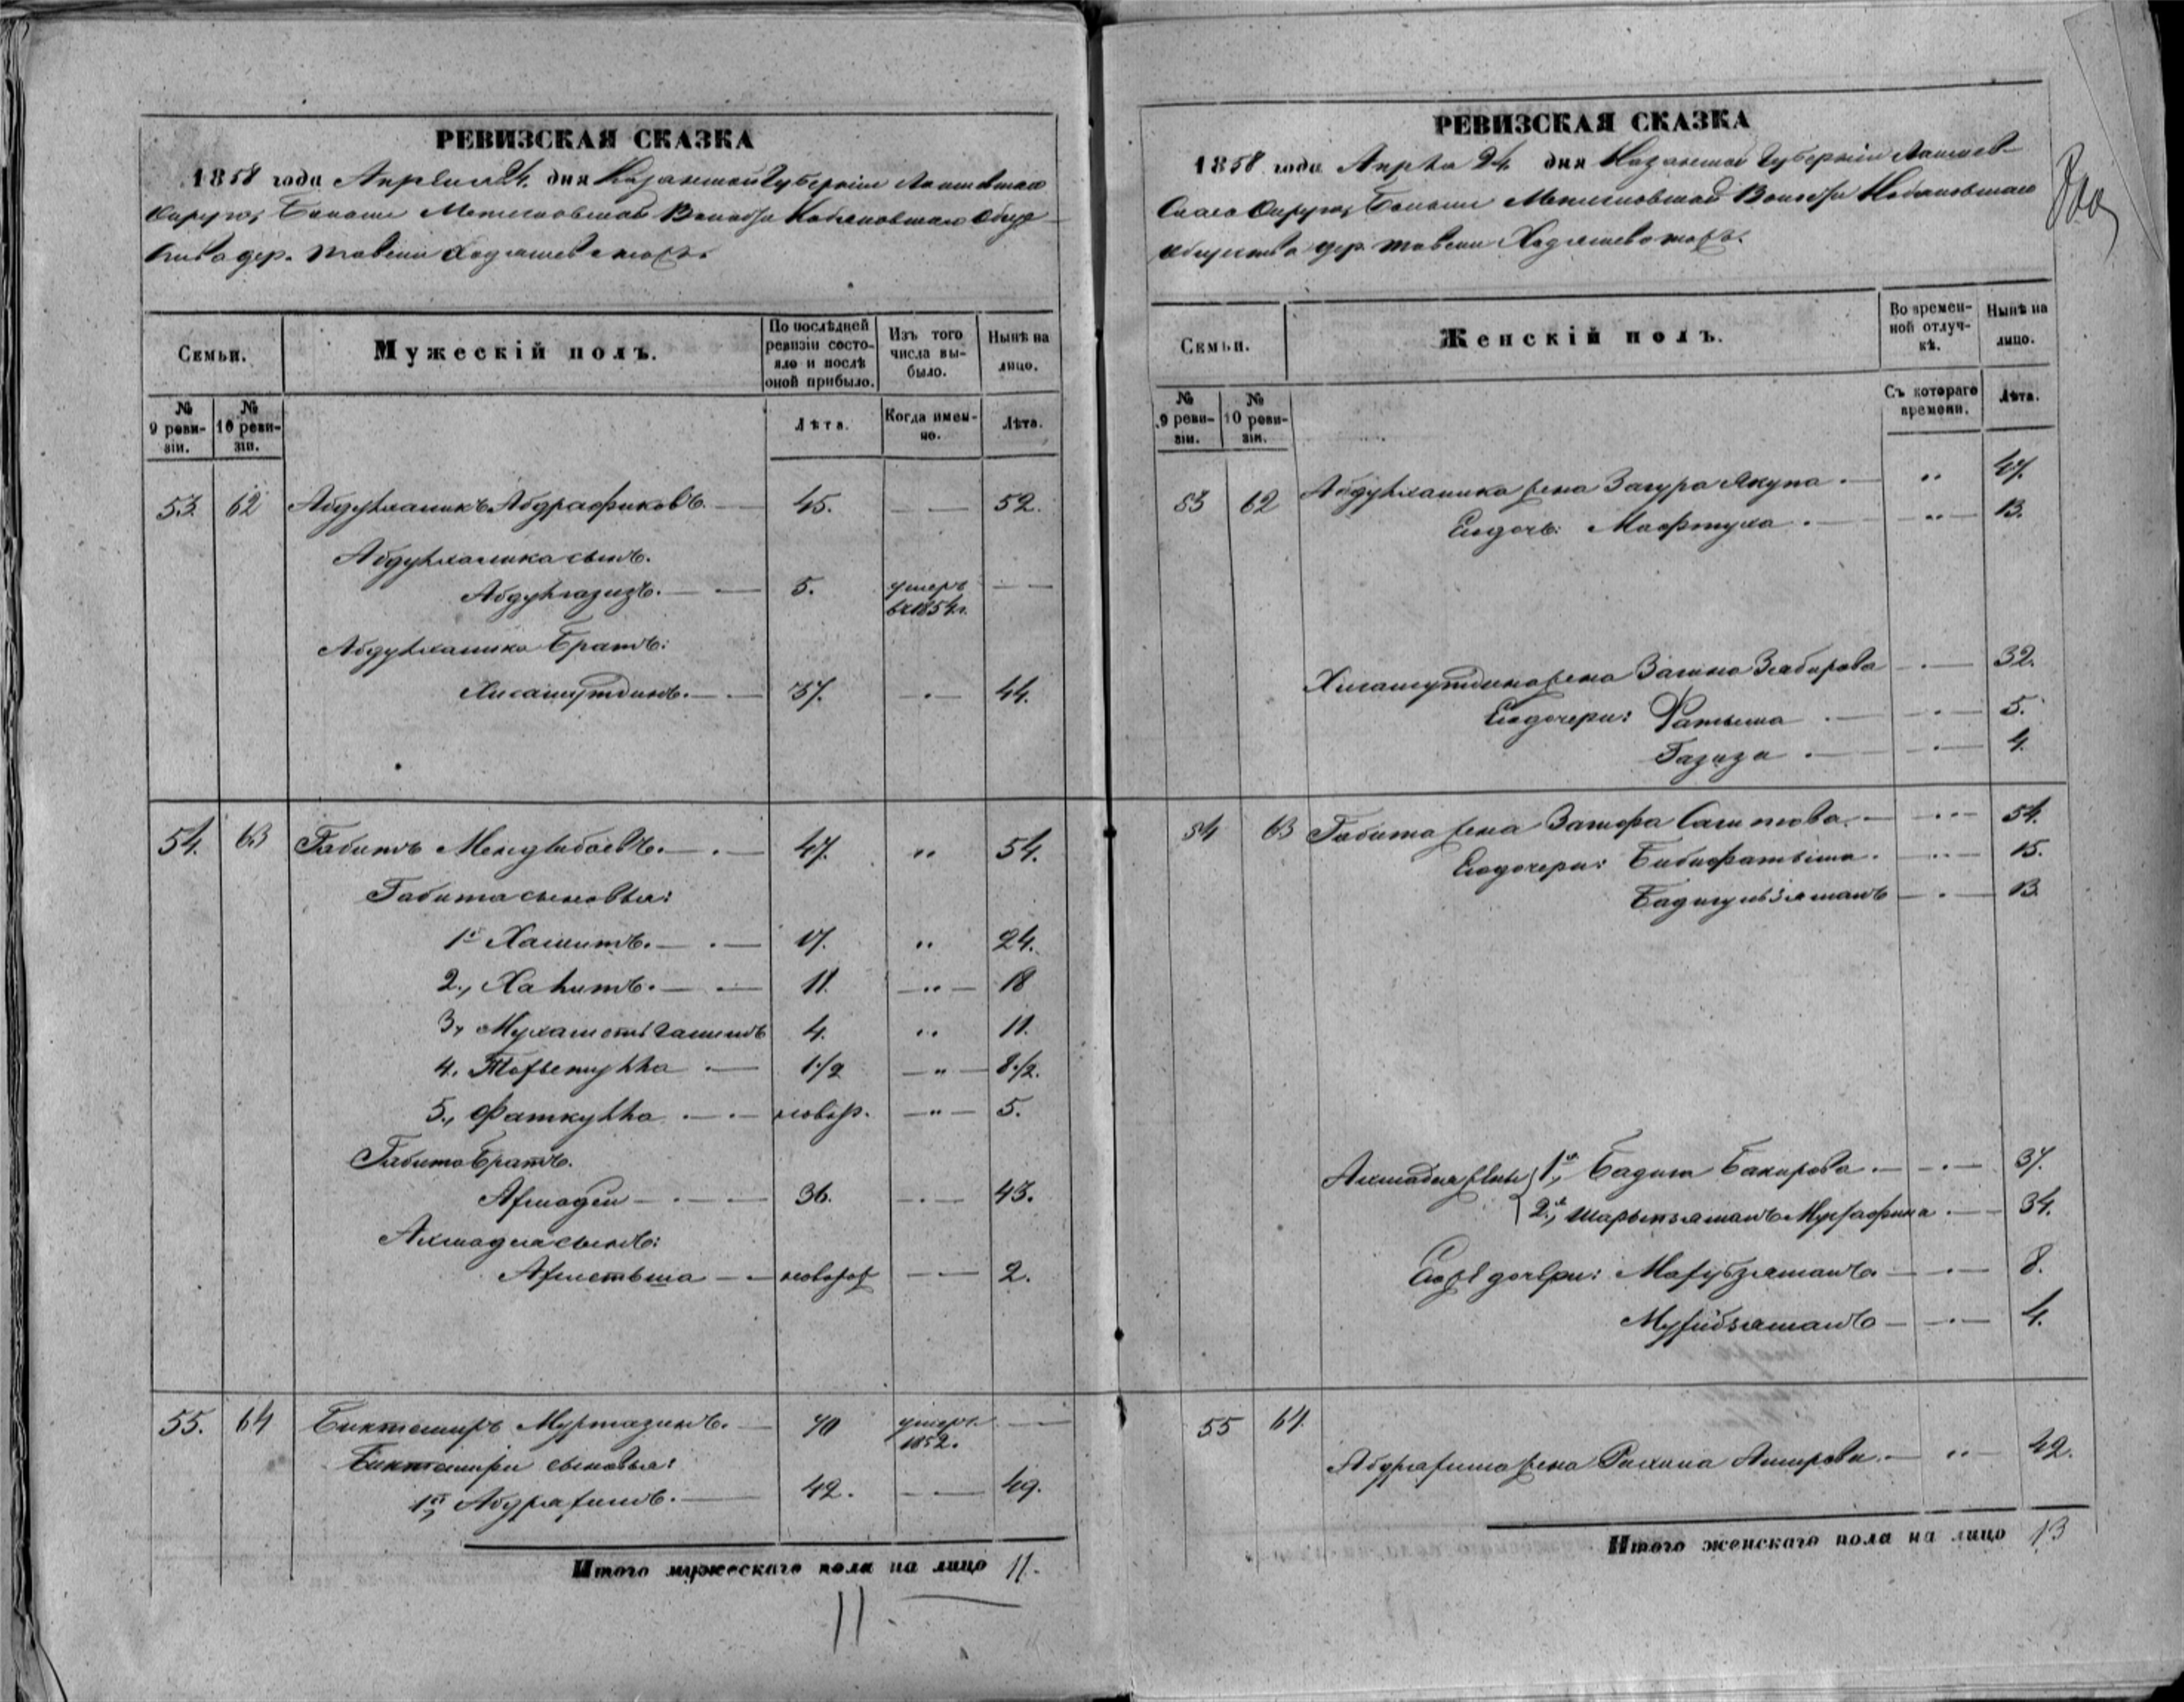 РЕВИЗСКАЯ СКАЗКА
1858 года Апреля 24 дня Казанской Губернiи Лаишевскаго
Округа, Больше Метесковской Волости Кобяковскаго Обще-
ства дер. Тавели Ходяшева тожъ.
Семьи.
Мужескiй полъ.
По послѣдней ревизiи состо-яло и послѣ оной прибыло.
Изъ того числа вы-было.
Нынѣ на лицо.
№ 9 реви-зiи.
№ 10 реви-зiи.
Лѣта.
Когда имен-но.
Лѣта.
53. 62 Абдулхаликъ Абдрафиковъ. 45. — 52.
Абдулхалика сынъ.
Абдулгазизъ. 5. умеръ въ 1854 г. —
Абдулхалика Братъ:
Хисамутдинъ. 37. — 44.
54. 63 Габитъ 47. " 54.
Габита сыновья:
1й Хамитъ. 17. " 24.
2., Халитъ. 11. " 18
3, 4. " 11.
4. 1 1/2 " 8 1/2.
5., Фаткулла новор. " 5.
Габита Братъ.
Ахмадей 36. — 43.
Ахмадея сынъ:
Ахметьша новорож — 2.
55. 64 Биктемиръ Муртазинъ. 70 умеръ 1852. —
Биктемира сыновья:
1й, Абдрахимъ. 42. — 49.
Итого мужескаго пола на лицо 11.
11.
РЕВИЗСКАЯ СКАЗКА
1858 года Апрѣля 24 дня Казанской Губернiи Лаишев-
скаго Округа, Больше Метесковской Волости Кобяковскаго
общества дер. Тавели Ходяшева тожъ.
Семьи.
Женскiй полъ.
Во времен-ной отлуч-кѣ.
Нынѣ на лицо.
№ 9 реви-зiи.
№ 10 реви-зiи.
Съ котораго времени.
Лѣта.
53 62 Абдулхалика жена Загура Якупа. " 47.
Ея дочь: Мафтуха. " 13.
Хисамутдина жена Забирова 32.
Ея дочери: Фатыма 5.
Газиза 4.
54 63 Габита жена Сагитова. 54.
Ея дочери: Бибифатыма. 15.
Бадигульзяманъ 13.
Ахмадея жены 1я, Бадига Бакирова. 37.
2я, Шарыпзяманъ 34.
Ея же дочери: Махубзяманъ 8.
Мухибзяманъ 4.
55 64.
Абдрахима жена Рахима Амирова. " 42.
Итого женскаго пола на лицо 13